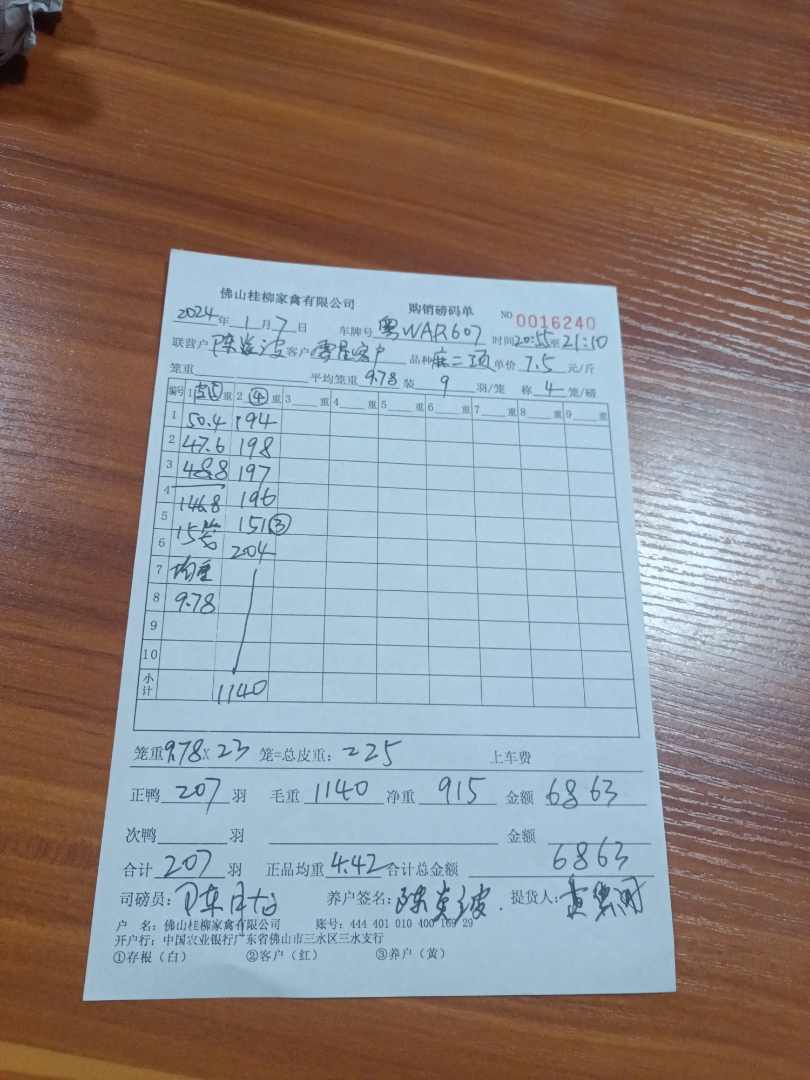 佛山桂柳家禽有限公司 购销磅码单 NO 0016240
2024年1月7日 车牌号 粤WAR607 时间20:55至21:10
联营户 陈 波 客户 零星客户 品种 麻二项 单价 7.5 元/斤
笼重 平均笼重 9.78 装 9 羽/笼 称 4 笼/磅
编号 1 皮⑤ 重 2 ④ 重 3 重 4 重 5 重 6 重 7 重 8 重 9 重
1 50.4 194
2 47.6 198
3 48.8 197
4 146.8 196
5 15笼 151③
6 204
7 均重
8 9.78
9
10
小计 1140
笼重9.78X 23 笼=总皮重: 225 上车费
正鸭 207 羽 毛重 1140 净重 915 金额 6863
次鸭 羽 金额
合计 207 羽 正品均重 4.42 合计总金额 6863
司磅员: 陈 养户签名: 陈 波 提货人: 黄
户 名: 佛山桂柳家禽有限公司 账号: 444 401 010 400 169 29
开户行: 中国农业银行广东省佛山市三水区三水支行
①存根(白) ②客户(红) ③养户(黄)